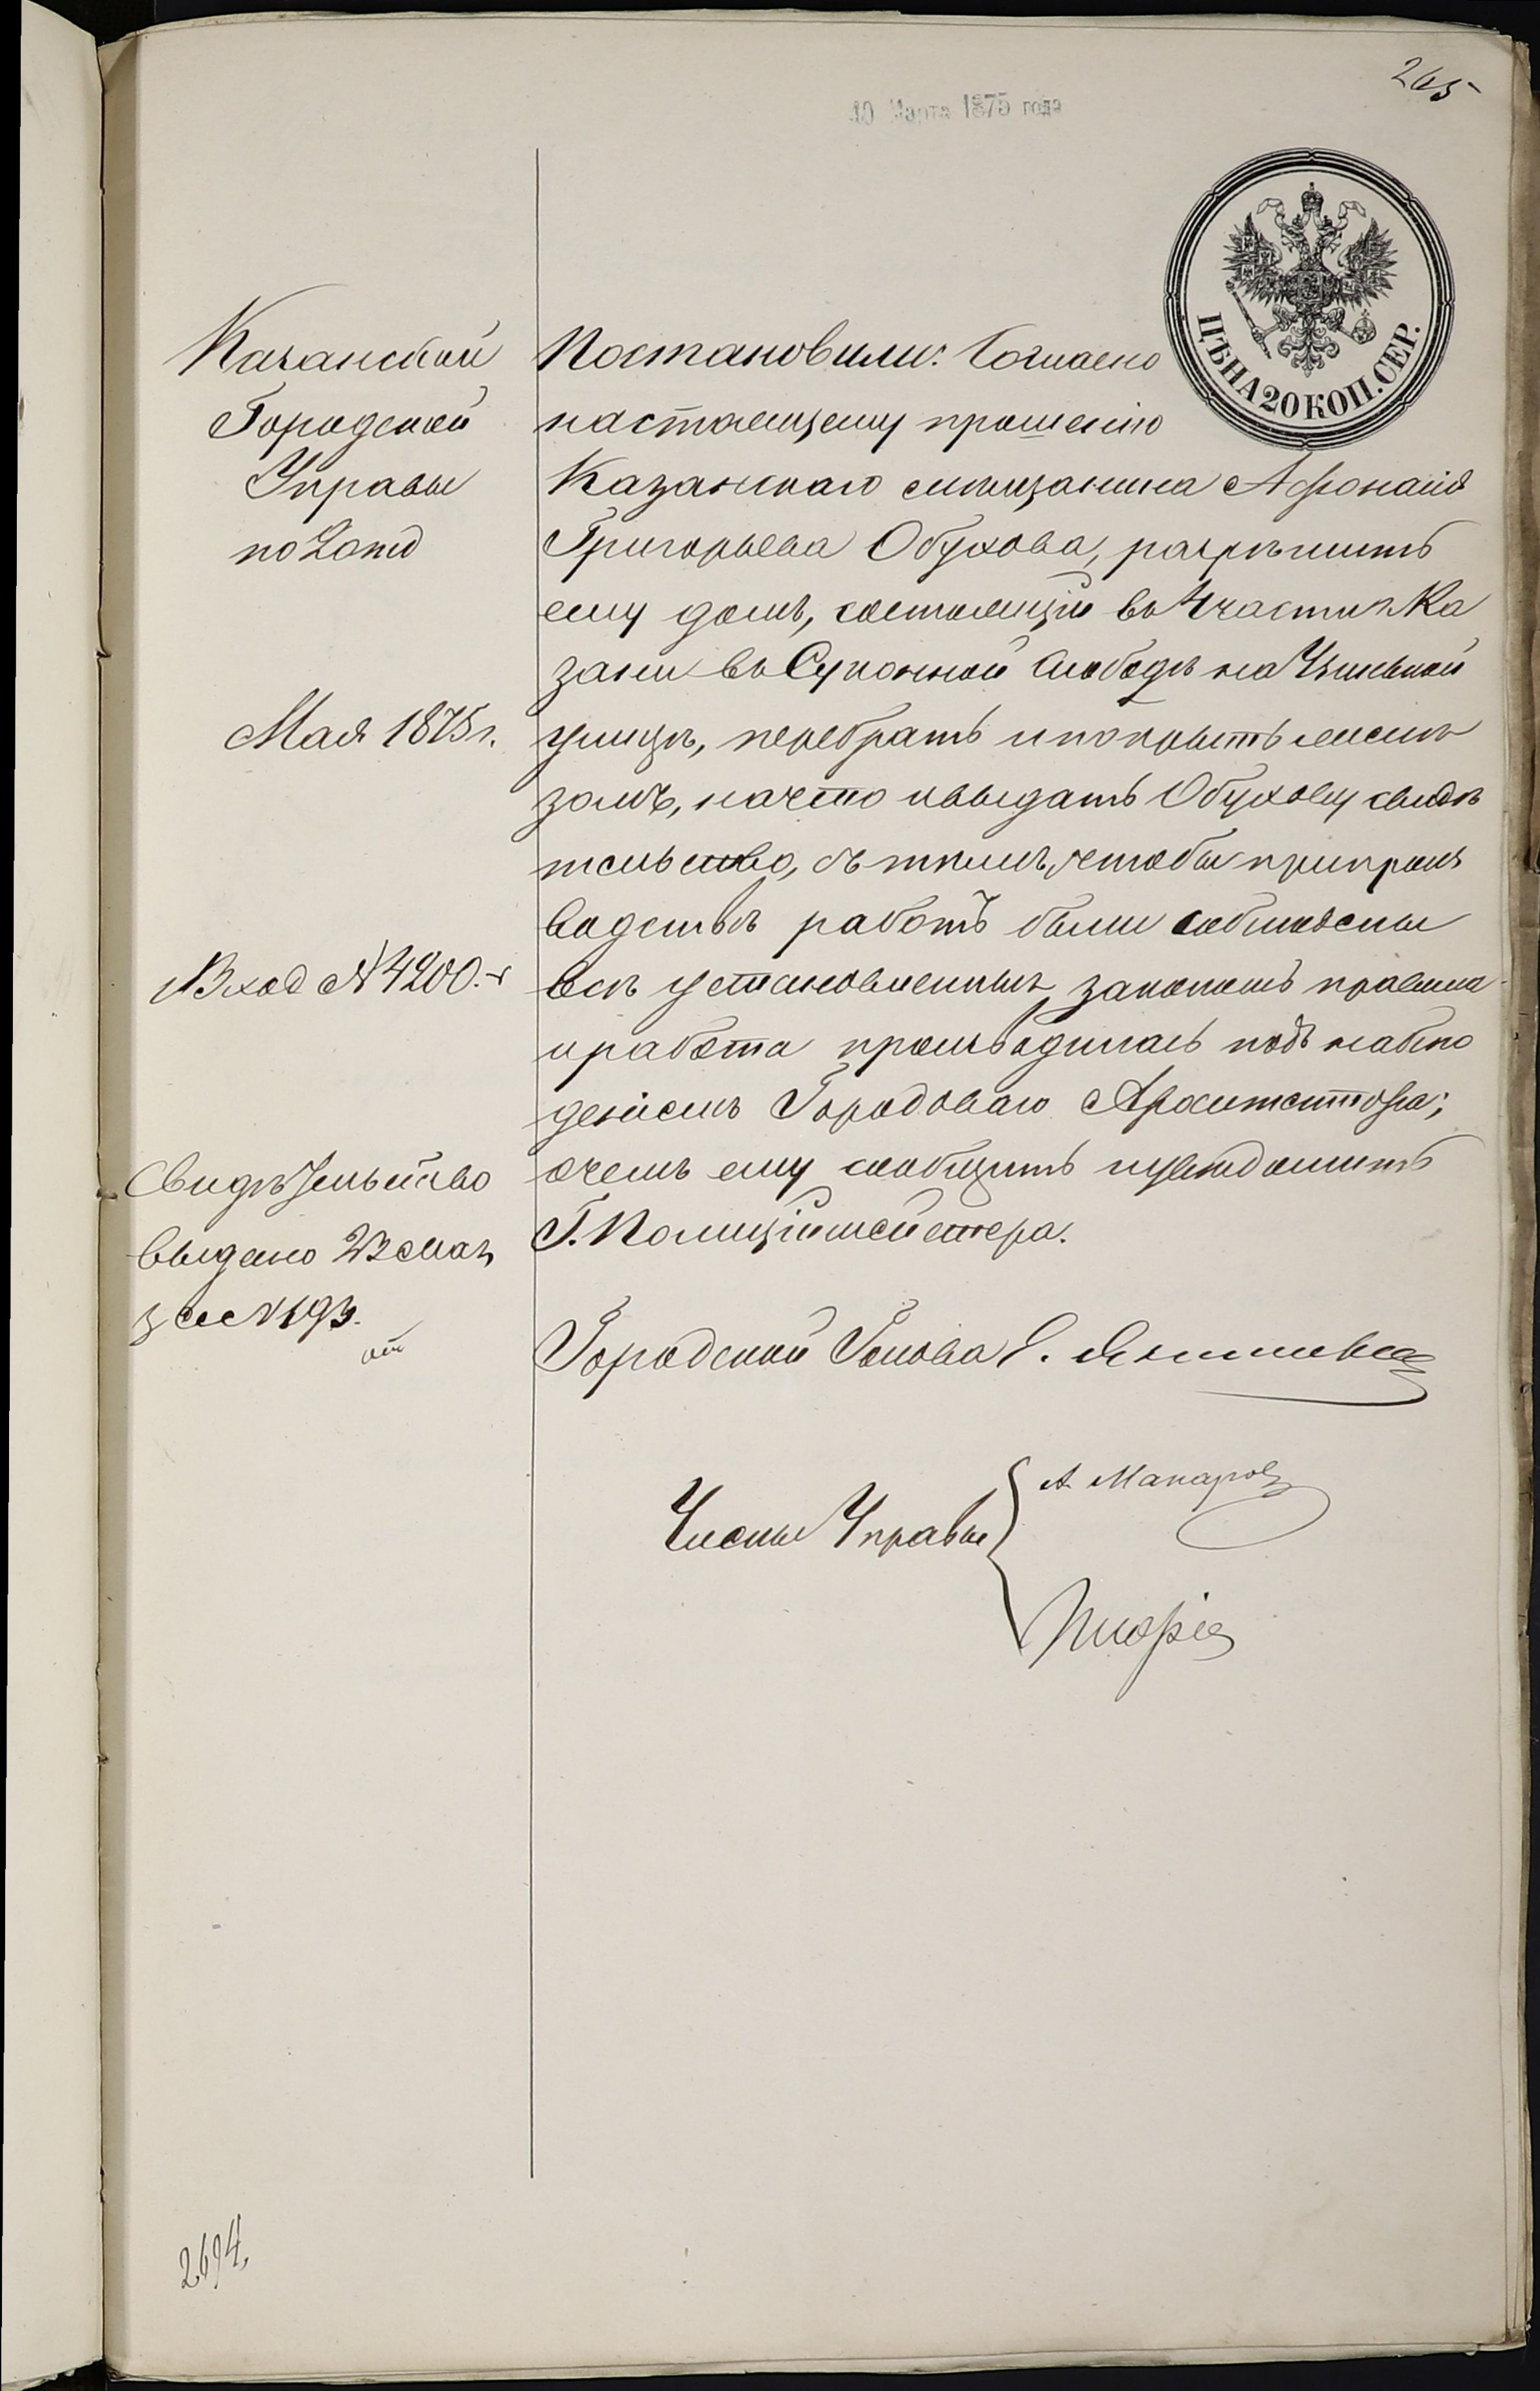 265
10 Марта 1875 года
ЦѢНА 20 КОП. СЕР.
Казанской
Городской
Управы
по 2 отд
Мая 1875 г.
Вход № 4200.
Свидѣтельство
выдано 23 мая
за № 193.
Постановили: Согласно
настоящему прошенію
Казанскаго мѣщанина Афонасія
Григорьева Обухова, разрѣшить
ему домъ, состоящій въ 4 части г. Ка
зани въ Суконной слободѣ на
улицѣ, перебрать и покрыть
, на что и выдать Обухову свидѣ
тельство, съ тѣмъ, чтобы при произ
водствѣ работъ были соблюдены
всѣ установленныя закономъ правила
и работа производилась подъ наблю
деніемъ Городоваго Архитектора;
о чемъ ему сообщить и увѣдомить
Г. Полиціймейстера.
Городской Голова Е. Янишевскій
Члены Управы
А. Макаровъ
2694,